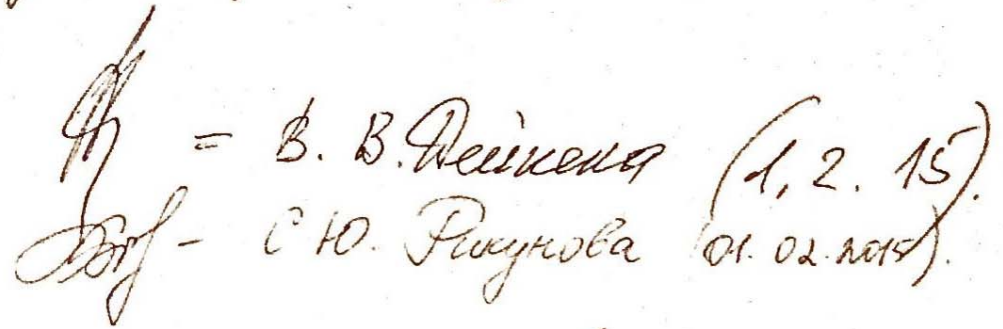 = В. В. Дейнека (1, 2. 15).
- С Ю. Рикунова (01. 02. 2015).